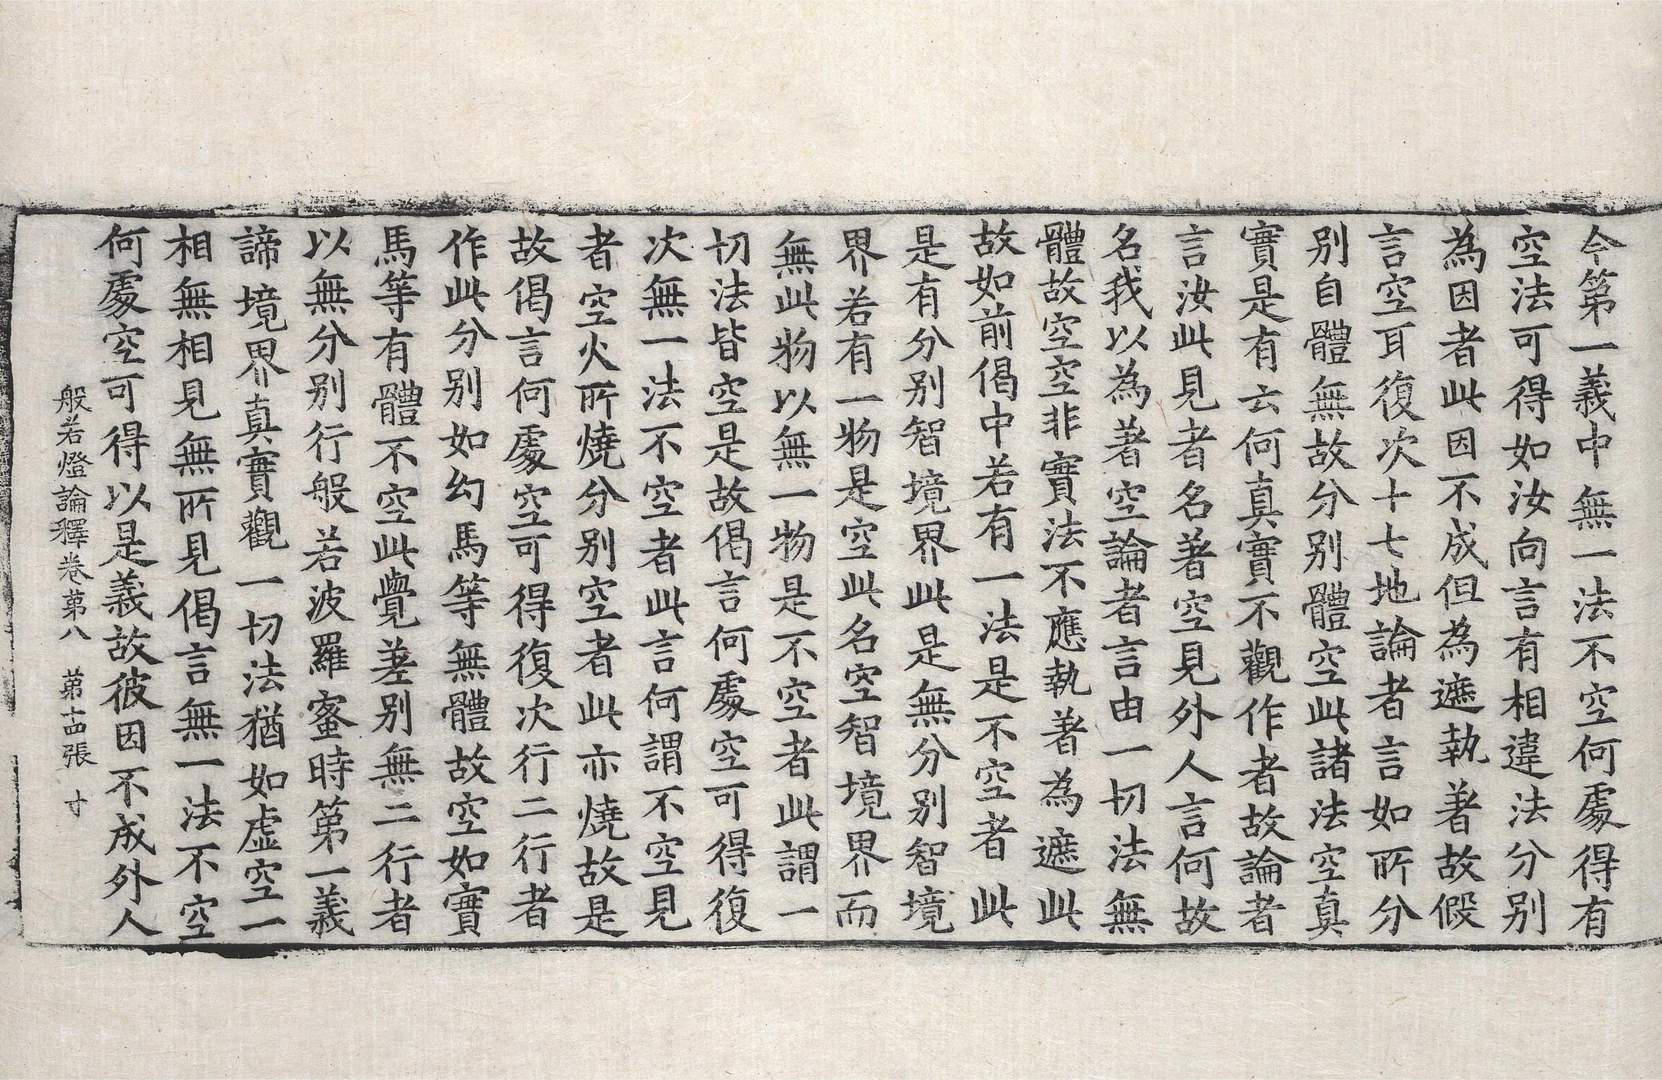 今第一義中無一法不空何處得有
空法可得如汝向言有相違法分别
為因者此因不成但為遮執著故假
言空耳復次十七地論者言如所分
别自體無故分别體空此諸法空真
實是有云何真實不觀作者故論者
言汝此見者名著空見外人言何故
名我以為著空論者言由一切法無
體故空空非實法不應執著為遮此
故如前偈中若有一法是不空者此
是有分别智境界此是無分别智境
界若有一物是空此名空智境界而
無此物以無一物是不空者此謂一
切法皆空是故偈言何處空可得復
次無一法不空者此言何謂不空見
者空火所燒分别空者此亦燒故是
故偈言何處空可得復次行二行者
作此分别如幻馬等無體故空如實
馬等有體不空此覺差别無二行者
以無分别行般若波羅蜜時第一義
諦境界真實觀一切法猶如虛空一
相無相見無所見偈言無一法不空
何處空可得以是義故彼因不成外人
般若燈論釋卷第八 第十四張 寸